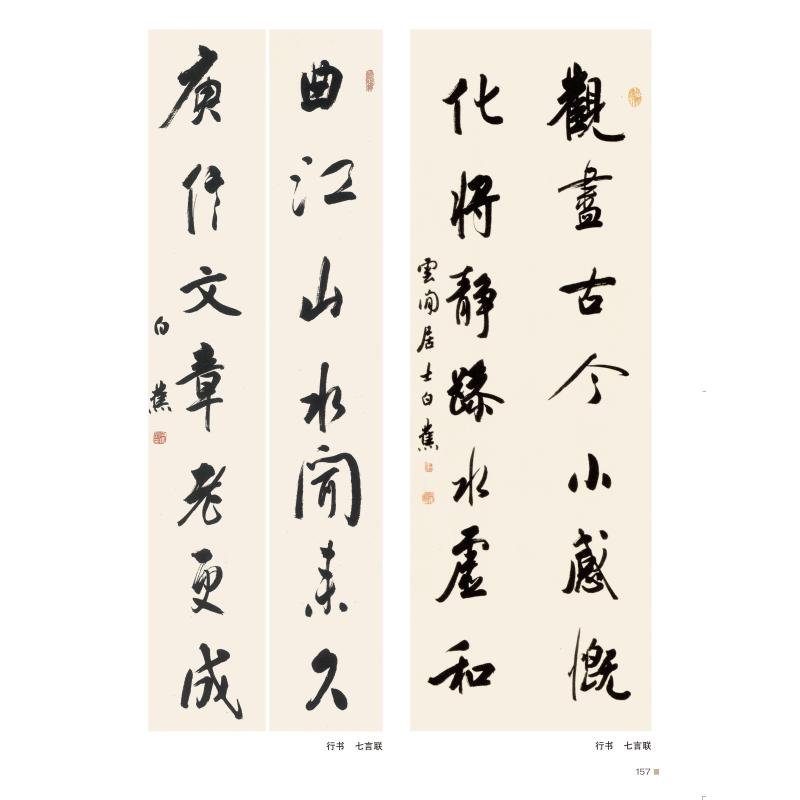 觀盡古今小感慨
化將靜躁水虛和
雲間居士白蕉
曲江山水聞來久
庾信文章老更成
白蕉
行书 七言联
行书 七言联
157